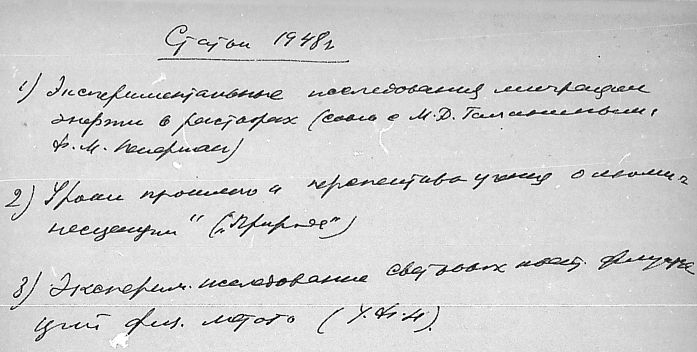 Статьи 1948 г
1) Экспериментальные исследования миграции
энергии в растворах (совм с М.Д. Галаниным,
Ф.М. Пекерман)
2) Уроки прошлого и перспектива учения о люми-
несценции" („Природе")
3) Эксперим. исследование световых квант. флуктуа
ций физ. методо (У.Ф.Н).